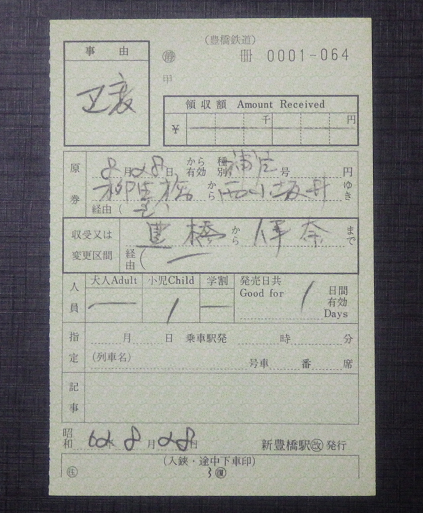 (豊橋鉄道)
事由 冊 0001-064
甲
領収額 Amount Received
¥ 千 円
原券 8月28日から有効 種別 補往 号 円
柳生橋から西小坂井ゆき
経由(
収受又は変更区間 豊橋から伊奈まで
経由(
人員 大人Adult 小児Child 学割 発売日共 Good for 1 日間有効 Days
一 1 一
指定 月 日 乗車駅発 時 分
(列車名) 号車 番 席
記事
昭和 60.8月28日 新豊橋駅改発行
(入鋏・途中下車印)